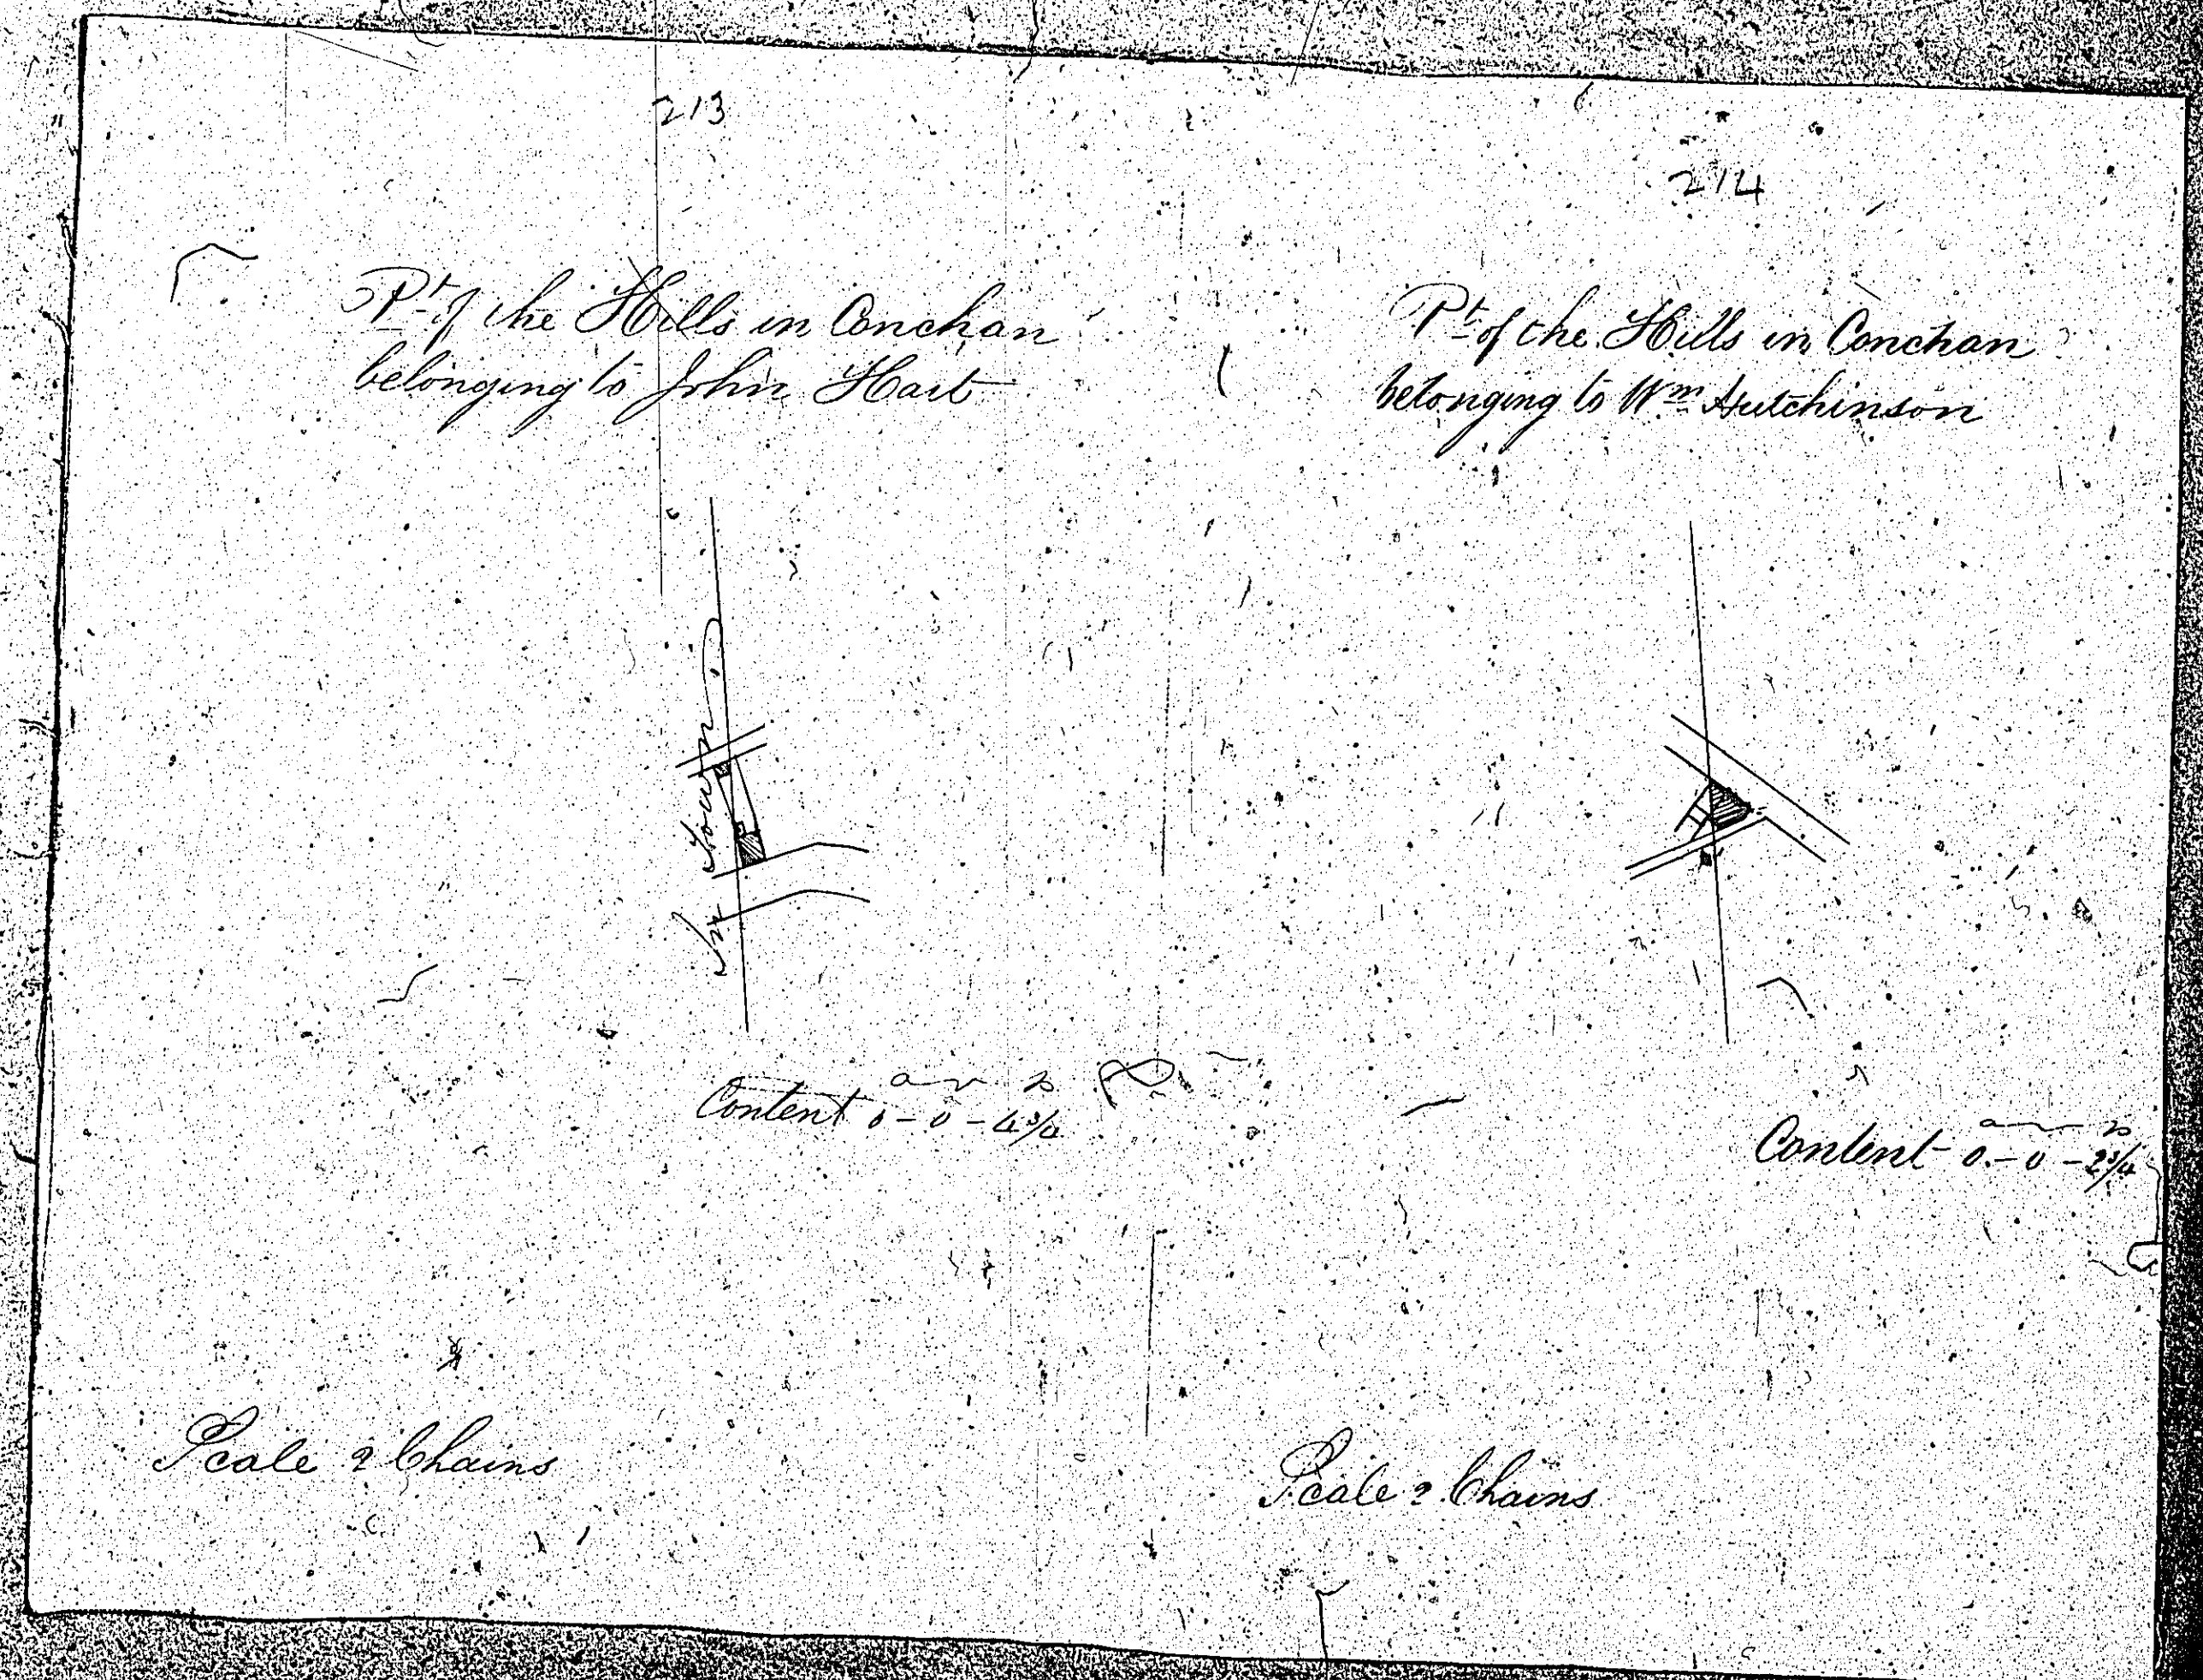 213
Pt of the Hills in Conchan
belonging to John Hart
In Town
a r p
Content 0-0-4 3/4
Scale 2 Chains
214
Pt of the Hills in Conchan
belonging to Wm Hutchinson
a r p
Content 0-0-2 3/4
Scale 2 Chains